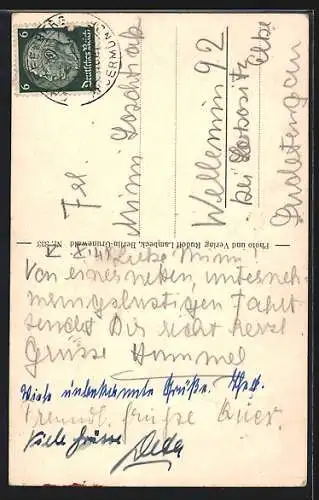 Deutsches Reich
6 6
Frl.
Minni Loschtiak
Wellemin 92
bei Lobositz
Elbe
Sudetengau
Photo und Verlag Rudolf Lambeck, Berlin-Grunewald Nr. 633
Liebe Minni!
Von einer netten, unterneh-
mungslustigen Fahrt
sendet Dir recht herzl.
Grüsse Hummel
Viele unbekannte Grüße.
Freundl. Grüße
Viele Grüsse